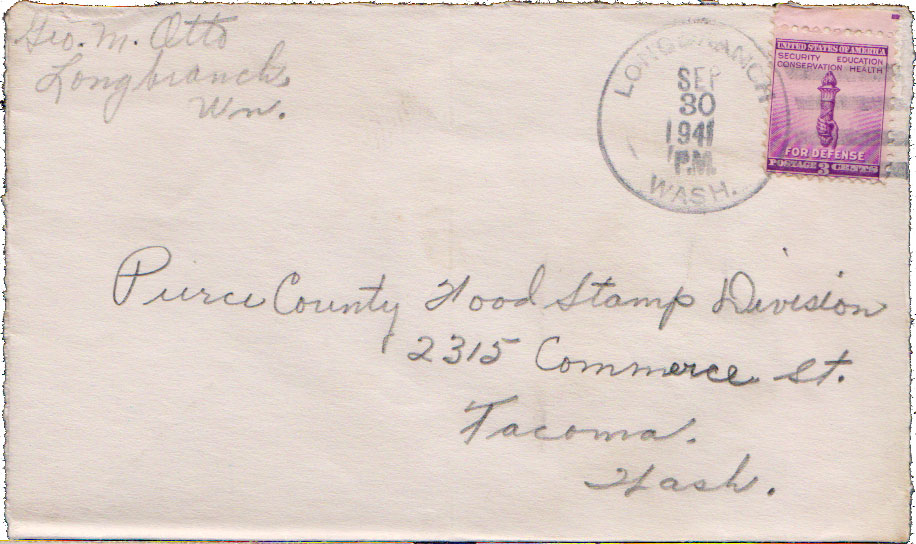 Geo. M. Otto
Longbranch,
Wn.
LONGBRANCH
SEP
30
1941
P.M.
WASH.
UNITED STATES OF AMERICA
SECURITY EDUCATION
CONSERVATION HEALTH
FOR DEFENSE
POSTAGE 3 CENTS
Pierce County Food Stamp Division
2315 Commerce St.
Tacoma.
Wash.